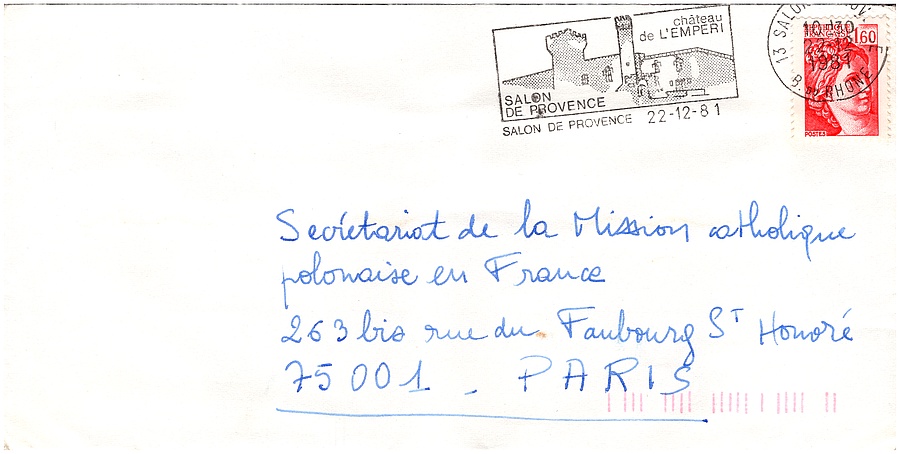 château
de L'EMPERI
SALON
DE PROVENCE
SALON DE PROVENCE 22-12-81
13 SALON
10H30
22-12
1981
B. DU RHONE
1,60
POSTES
Secrétariat de la Mission catholique
polonaise en France
263 bis rue du Faubourg St Honoré
75001 - PARIS